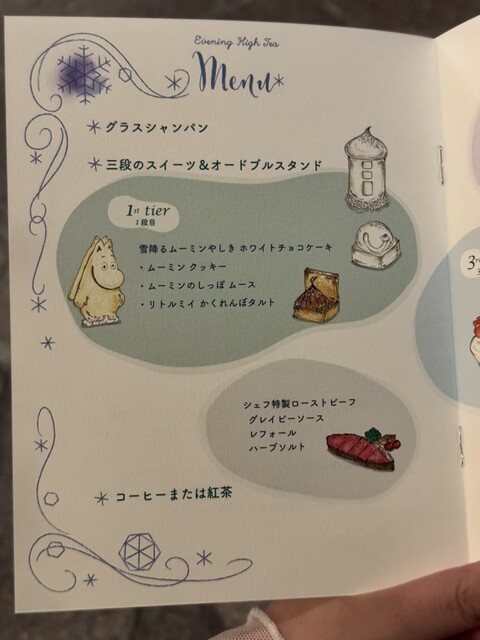 Evening High Tea
Menu
グラスシャンパン
三段のスイーツ＆オードブルスタンド
1st tier
1段目
雪降るムーミンやしき ホワイトチョコケーキ
・ムーミン クッキー
・ムーミンのしっぽ ムース
・リトルミイ かくれんぼタルト
シェフ特製ローストビーフ
グレイビーソース
レフォール
ハーブソルト
コーヒーまたは紅茶
3